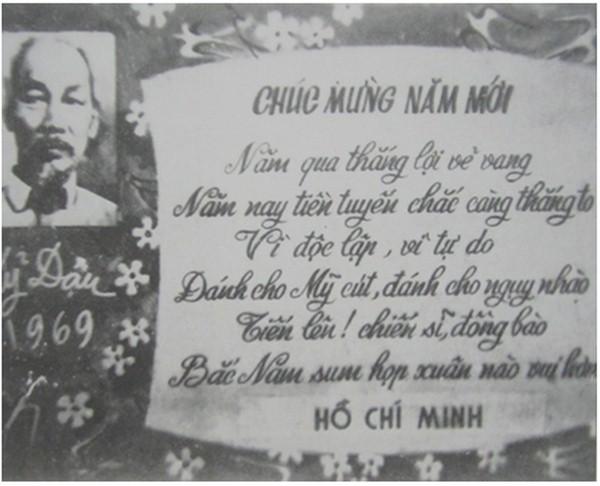 CHÚC MỪNG NĂM MỚI
Năm qua thắng lợi vẻ vang
Năm nay tiền tuyến chắc càng thắng to
Vì độc lập, vì tự do
Đánh cho Mỹ cút, đánh cho ngụy nhào
Tiến lên! chiến sĩ, đồng bào
Bắc Nam sum họp xuân nào vui hơn
HỒ CHÍ MINH
Kỷ Dậu
1969